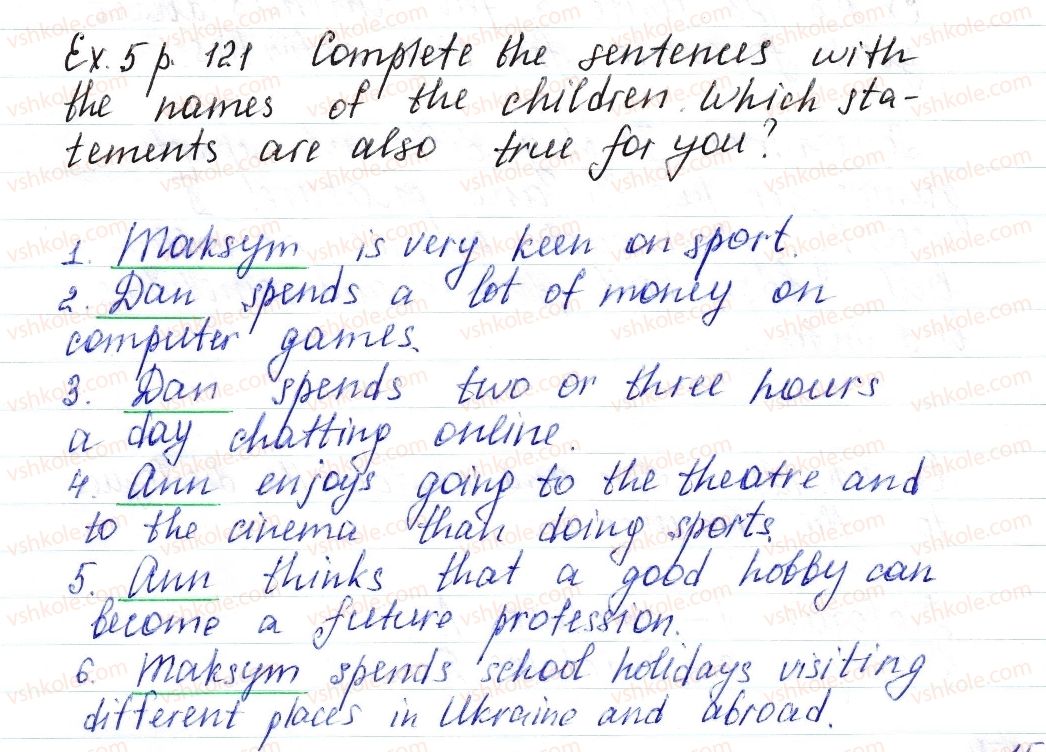 Ex. 5 p. 121 Complete the sentences with
the names of the children. Which sta-
tements are also true for you?
1. Maksym is very keen on sport.
2. Dan spends a lot of money on
computer games.
3. Dan spends two or three hours
a day chatting online.
4. Ann enjoys going to the theatre and
to the cinema than doing sports.
5. Ann thinks that a good hobby can
become a future profession.
6. Maksym spends school holidays visiting
different places in Ukraine and abroad.